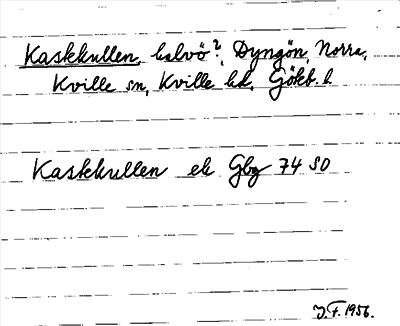 Kaskkullen, halvö?, Dyngön, Norra,
Kville sn, Kville hd, Göteb. l
Kaskkullen ek Gbg 74 SO
J.F. 1956.